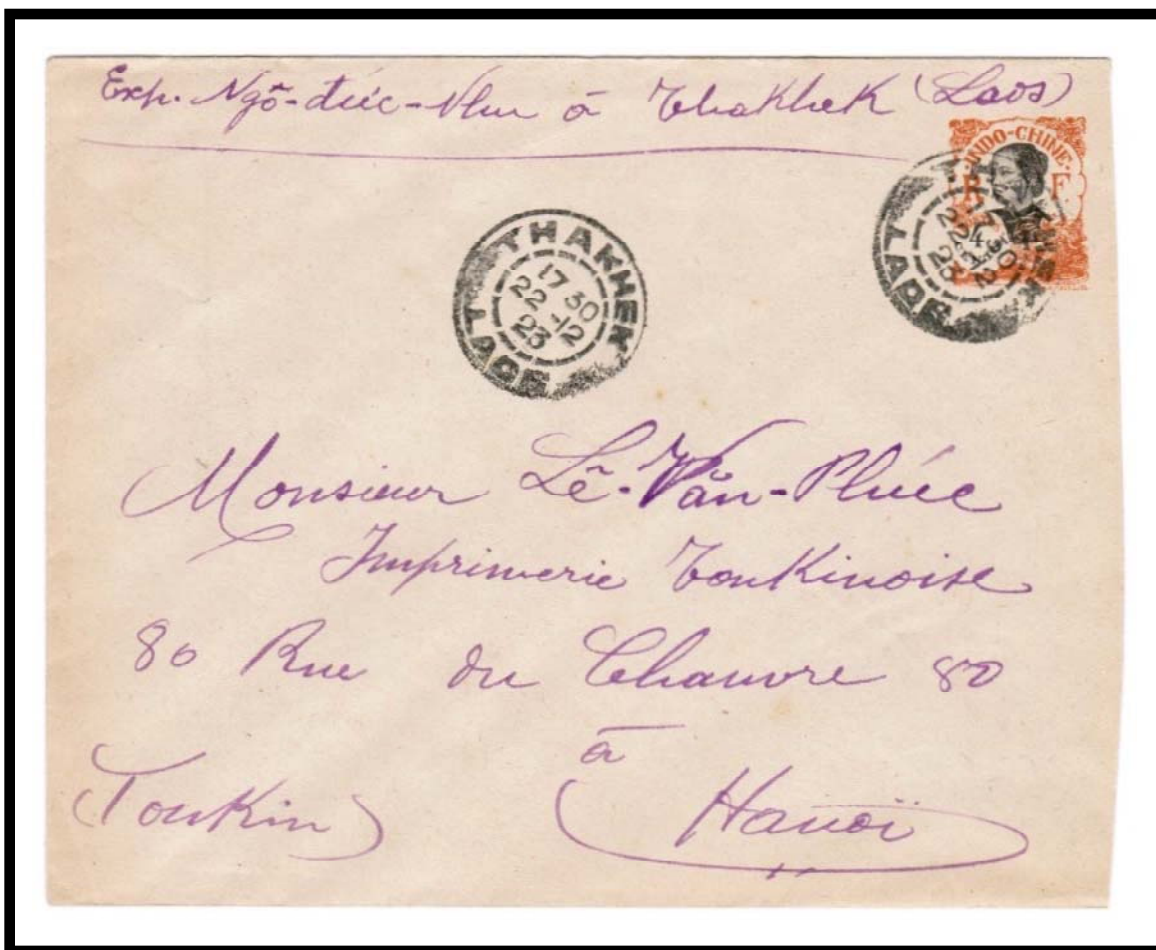 Exp. Ngô-đức-Nhu à Thakhek (Laos)
INDO-CHINE
R F
4
THAKHEK
17 30
22 -12
23
LAOS
17 30
22 -12
23
LAOS
Monsieur Lê-Văn-Phúc
Imprimerie Tonkinoise
80 Rue du Chanvre 80
à
(Tonkin) Hanoï